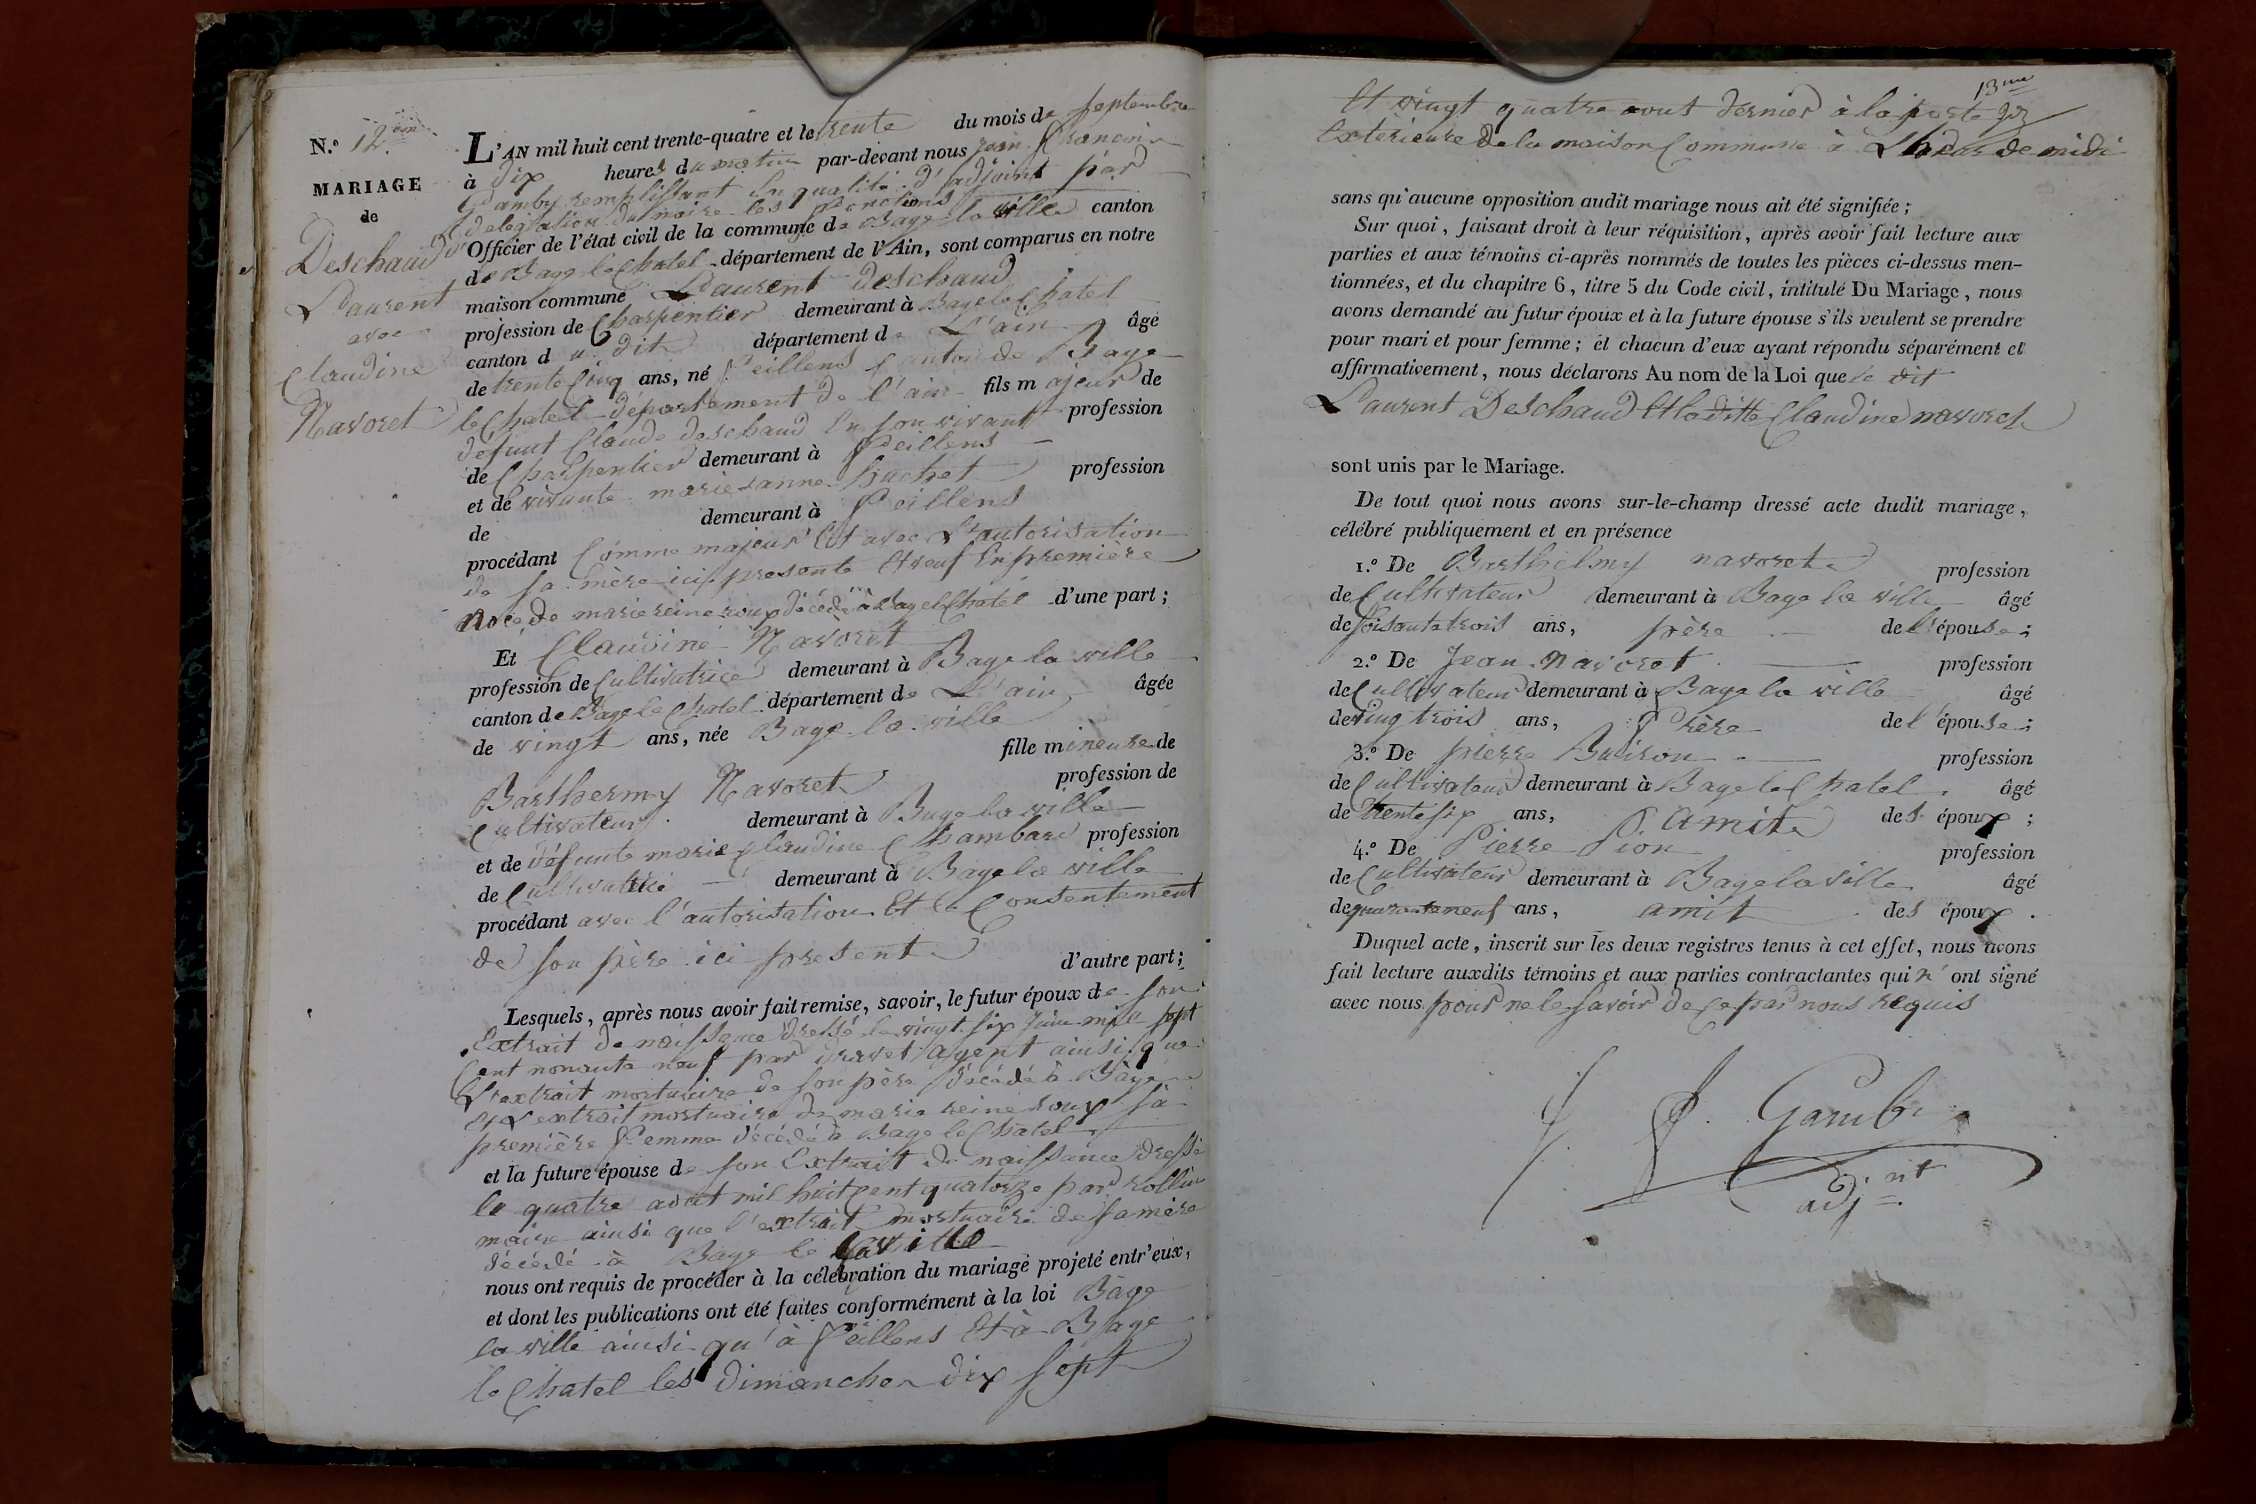 N.º 12.em
MARIAGE
de
Deschaud
Laurent
avec
Claudine
Navoret
L'AN mil huit cent trente-quatre et le trente du mois de septembre
à dix heures du matin par-devant nous jean françois
Gamby remplissant en qualité d'adjoint par
délégation du maire les fonctions
d'Officier de l'état civil de la commune de Bage la ville canton
de Bage le Chatel département de l'Ain, sont comparus en notre
maison commune Laurent deschaud
profession de Charpentier demeurant à Bage le Chatel
canton du dit département de L'ain âgé
de trente Cinq ans, né feillens Canton de Bage
le Chatel département de l'ain fils majeur de
defunt Claude deschaud En son vivant profession
de Charpentier demeurant à feillens
et de vivante marie anne profession
de demeurant à feillens
procédant Comme majeur Et avec L'autorisation
de sa mère ici presente Et veuf En première
Noce de marie reine roux décédé à Bage le Chatel d'une part;
Et Claudine Navoret
profession de Cultivatrice demeurant à Bage la ville
canton de Bage le Chatel département de L'ain âgée
de vingt ans, née Bage la ville
fille mineure de
Barthermy Navoret profession de
Cultivateur demeurant à Bage la ville
et de défunte marie Claudine Chambard profession
de Cultivatrice demeurant à Bage la ville
procédant avec l'autorisation Et le Consentement
de son père ici present d'autre part;
Lesquels, après nous avoir fait remise, savoir, le futur époux de son
Extrait de naissance dressé le vingt six juin mil sept
Cent nonante neuf par agent ainsi que
L'extrait mortuaire de son père décédé à Bage
Et L'extrait mortuaire de marie reine roux sa
première femme décédé à Bage le Chatel
et la future épouse de son Extrait de naissance dressé
le quatre aout mil huit cent quatorze par rollin
maire ainsi que l'extrait mortuaire de sa mère
décédé à Bage le la ville
nous ont requis de procéder à la célébration du mariage projeté entr'eux,
et dont les publications ont été faites conformément à la loi Bage
la ville ainsi qu'à feillens Et à Bage
le Chatel les dimanches dix sept
13me
Et vingt quatre aout dernier à la porte
Extérieure de la maison Commune à L'heure de midi
sans qu'aucune opposition audit mariage nous ait été signifiée;
Sur quoi, faisant droit à leur réquisition, après avoir fait lecture aux
parties et aux témoins ci-après nommés de toutes les pièces ci-dessus men-
tionnées, et du chapitre 6, titre 5 du Code civil, intitulé Du Mariage, nous
avons demandé au futur époux et à la future épouse s'ils veulent se prendre
pour mari et pour femme; et chacun d'eux ayant répondu séparément et
affirmativement, nous déclarons Au nom de la Loi que le dit
Laurent Deschaud Et la ditte Claudine navoret
sont unis par le Mariage.
De tout quoi nous avons sur-le-champ dressé acte dudit mariage,
célébré publiquement et en présence
1.º De Barthelmy navoret profession
de Cultivateur demeurant à Bage la ville âgé
de soisante trois ans, père de l'épouse;
2.º De Jean Navoret profession
de Cultivateur demeurant à Bage la ville âgé
de ving trois ans, frère de l'épouse;
3.º De pierre Buiron profession
de Cultivateur demeurant à Bage le Chatel âgé
de trente six ans, amit des époux;
4.º De Pierre Pion profession
de Cultivateur demeurant à Bage la ville âgé
de quarante neuf ans, amit des époux.
Duquel acte, inscrit sur les deux registres tenus à cet effet, nous avons
fait lecture auxdits témoins et aux parties contractantes qui n'ont signé
avec nous pour ne le savoir de ce par nous requis
J. f. Gambi
adjnt